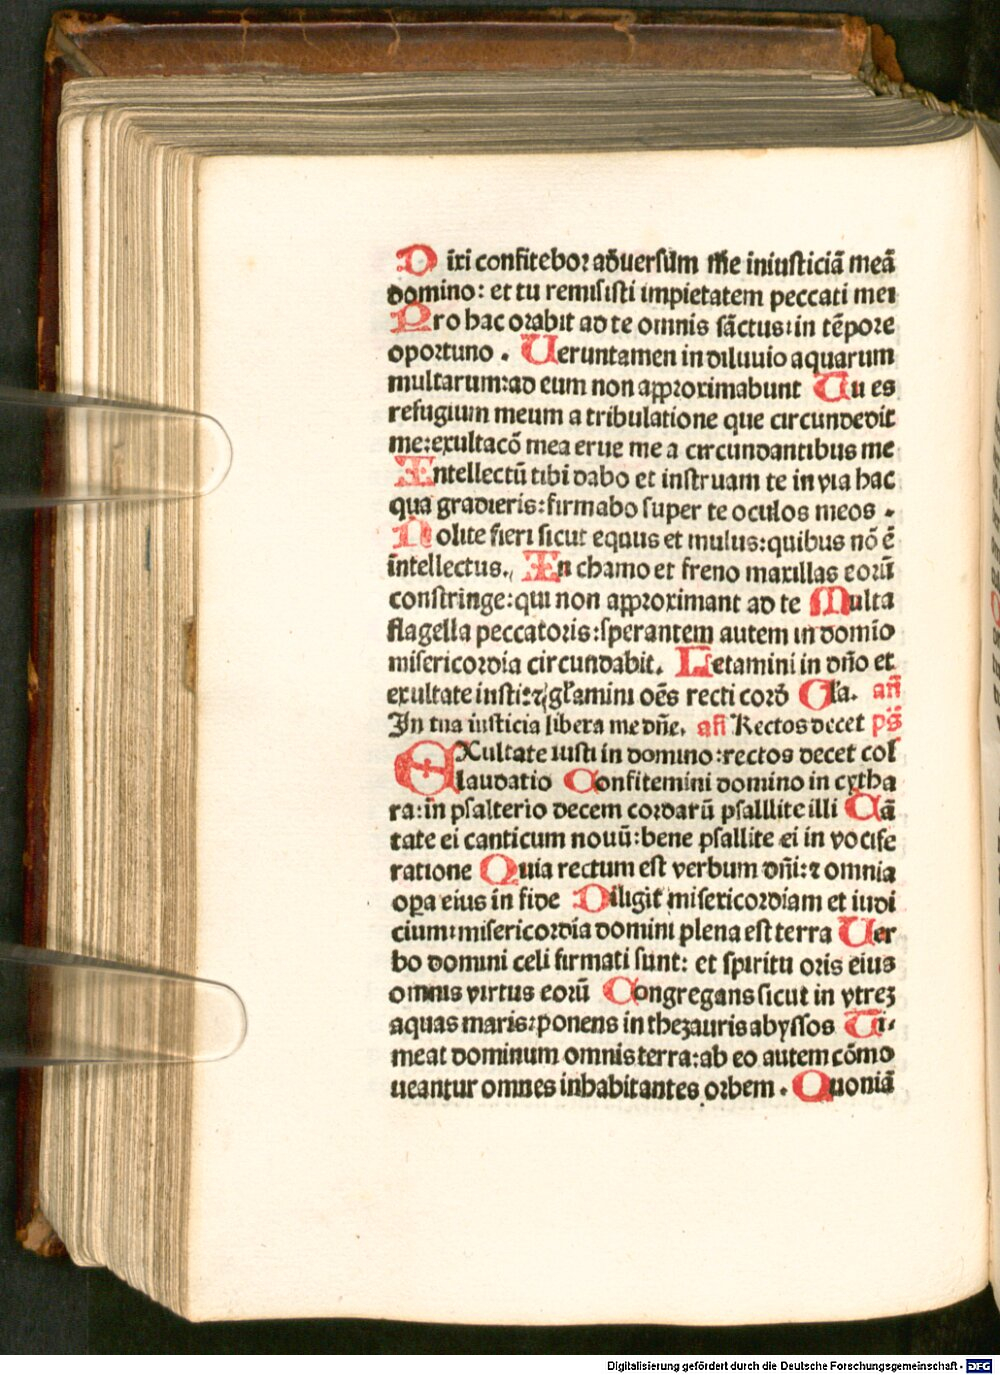 Dixi confitebor adversum me iniusticiã meã
domino: et tu remisisti impietatem peccati mei
Pro hac orabit ad te omnis sãctus: in tẽpore
oportuno. Ueruntamen in diluuio aquarum
multarum: ad eum non approximabunt Tu es
refugium meum a tribulatione que circundedit
me: exultacõ mea erue me a circundantibus me
Intellectũ tibi dabo et instruam te in via hac
qua gradieris: firmabo super te oculos meos.
Nolite fieri sicut equus et mulus: quibus nõ ẽ
ĩntellectus. In chamo et freno maxillas eorũ
constringe: qui non approximant ad te Multa
flagella peccatoris: sperantem autem in domĩo
misericordia circundabit. Letamini in dño et
exultate iusti: ⁊ gl̃amini oẽs recti cord̃ Gl̃a. añ
In tua iusticia libera me dñe. añ Rectos decet ps̃
EXultate iusti in domino: rectos decet col
laudatio Confitemini domino in cytha
ra: in psalterio decem cordarũ psalllite illi Cã
tate ei canticum nouũ: bene psallite ei in vocife
ratione Quia rectum est verbum dñi: ⁊ omnia
opa eius in fide Diligit misericordiam et iudi
cium: misericordia domini plena est terra Uer
bo domini celi firmati sunt: et spiritu oris eius
omnis virtus eorũ Congregans sicut in vtreʒ
aquas maris: ponens in thezauris abyssos Ti⸗
meat dominum omnis terra: ab eo autem cõmo
ueantur omnes inhabitantes orbem. Quoniã
Digitalisierung gefördert durch die Deutsche Forschungsgemeinschaft - DFG